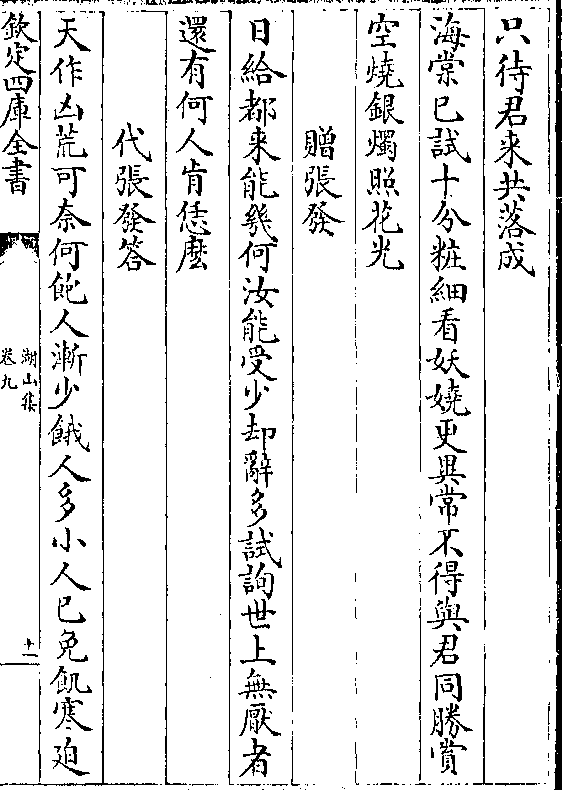 只待君来共落成
海棠已試十分粧細看妖嬈更異常不得與君同勝賞
空燒銀燭照花光
贈張發
日給都来能幾何汝能受少却辭多試詢世上無厭者
還有何人肯恁麽
代張發答
天作凶荒可奈何飽人漸少餓人多小人已免飢寒廹
欽定四庫全書
湖山集
卷九
十一